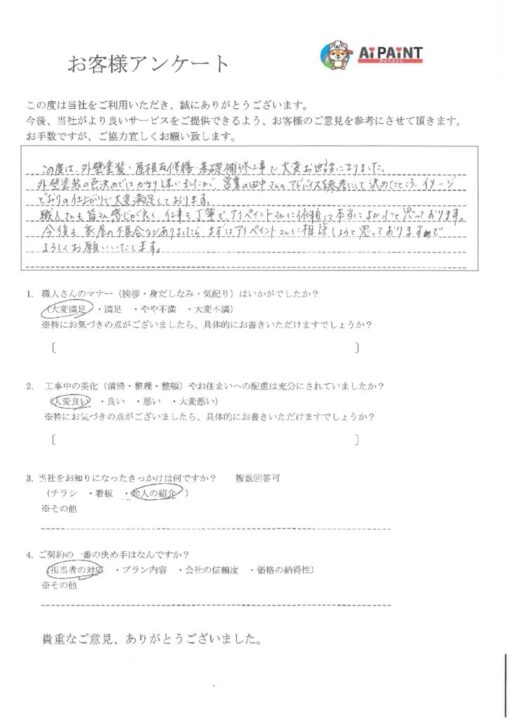 Ai PAiNT
アイペイント
お客様アンケート
この度は当社をご利用いただき、誠にありがとうございます。
今後、当社がより良いサービスをご提供できるよう、お客様のご意見を参考にさせて頂きます。
お手数ですが、ご協力宜しくお願い致します。
この度は、外壁塗装・屋根瓦修繕・基礎補修工事で大変お世話になりました。
外壁塗装の色決めではかなり迷いましたが、営業の田中さんのアドバイスを参考にして決めたところ、イメージ
どおりの仕上がりで大変満足しております。
職人さんも皆さん感じが良く、仕事も丁寧で、アイペイントさんに依頼して本当によかったと思っております。
今後も家屋の不具合などありましたら、まずはアイペイントさんに相談しようと思っておりますので
よろしくお願いいたします。
1. 職人さんのマナー（挨拶・身だしなみ・気配り）はいかがでしたか？
（大変満足・満足・やや不満・大変不満）
※特にお気づきの点がございましたら、具体的にお書きいただけますでしょうか？
〔　〕
2. 工事中の美化（清掃・整理・整頓）やお住まいへの配慮は充分にされていましたか？
（大変良い・良い・悪い・大変悪い）
※特にお気づきの点がございましたら、具体的にお書きいただけますでしょうか？
〔　〕
3. 当社をお知りになったきっかけは何ですか？　複数回答可
（チラシ・看板・他人の紹介）
※その他
4. ご契約の一番の決め手はなんですか？
（担当者の対応・プラン内容・会社の信頼度・価格の納得性）
※その他
貴重なご意見、ありがとうございました。